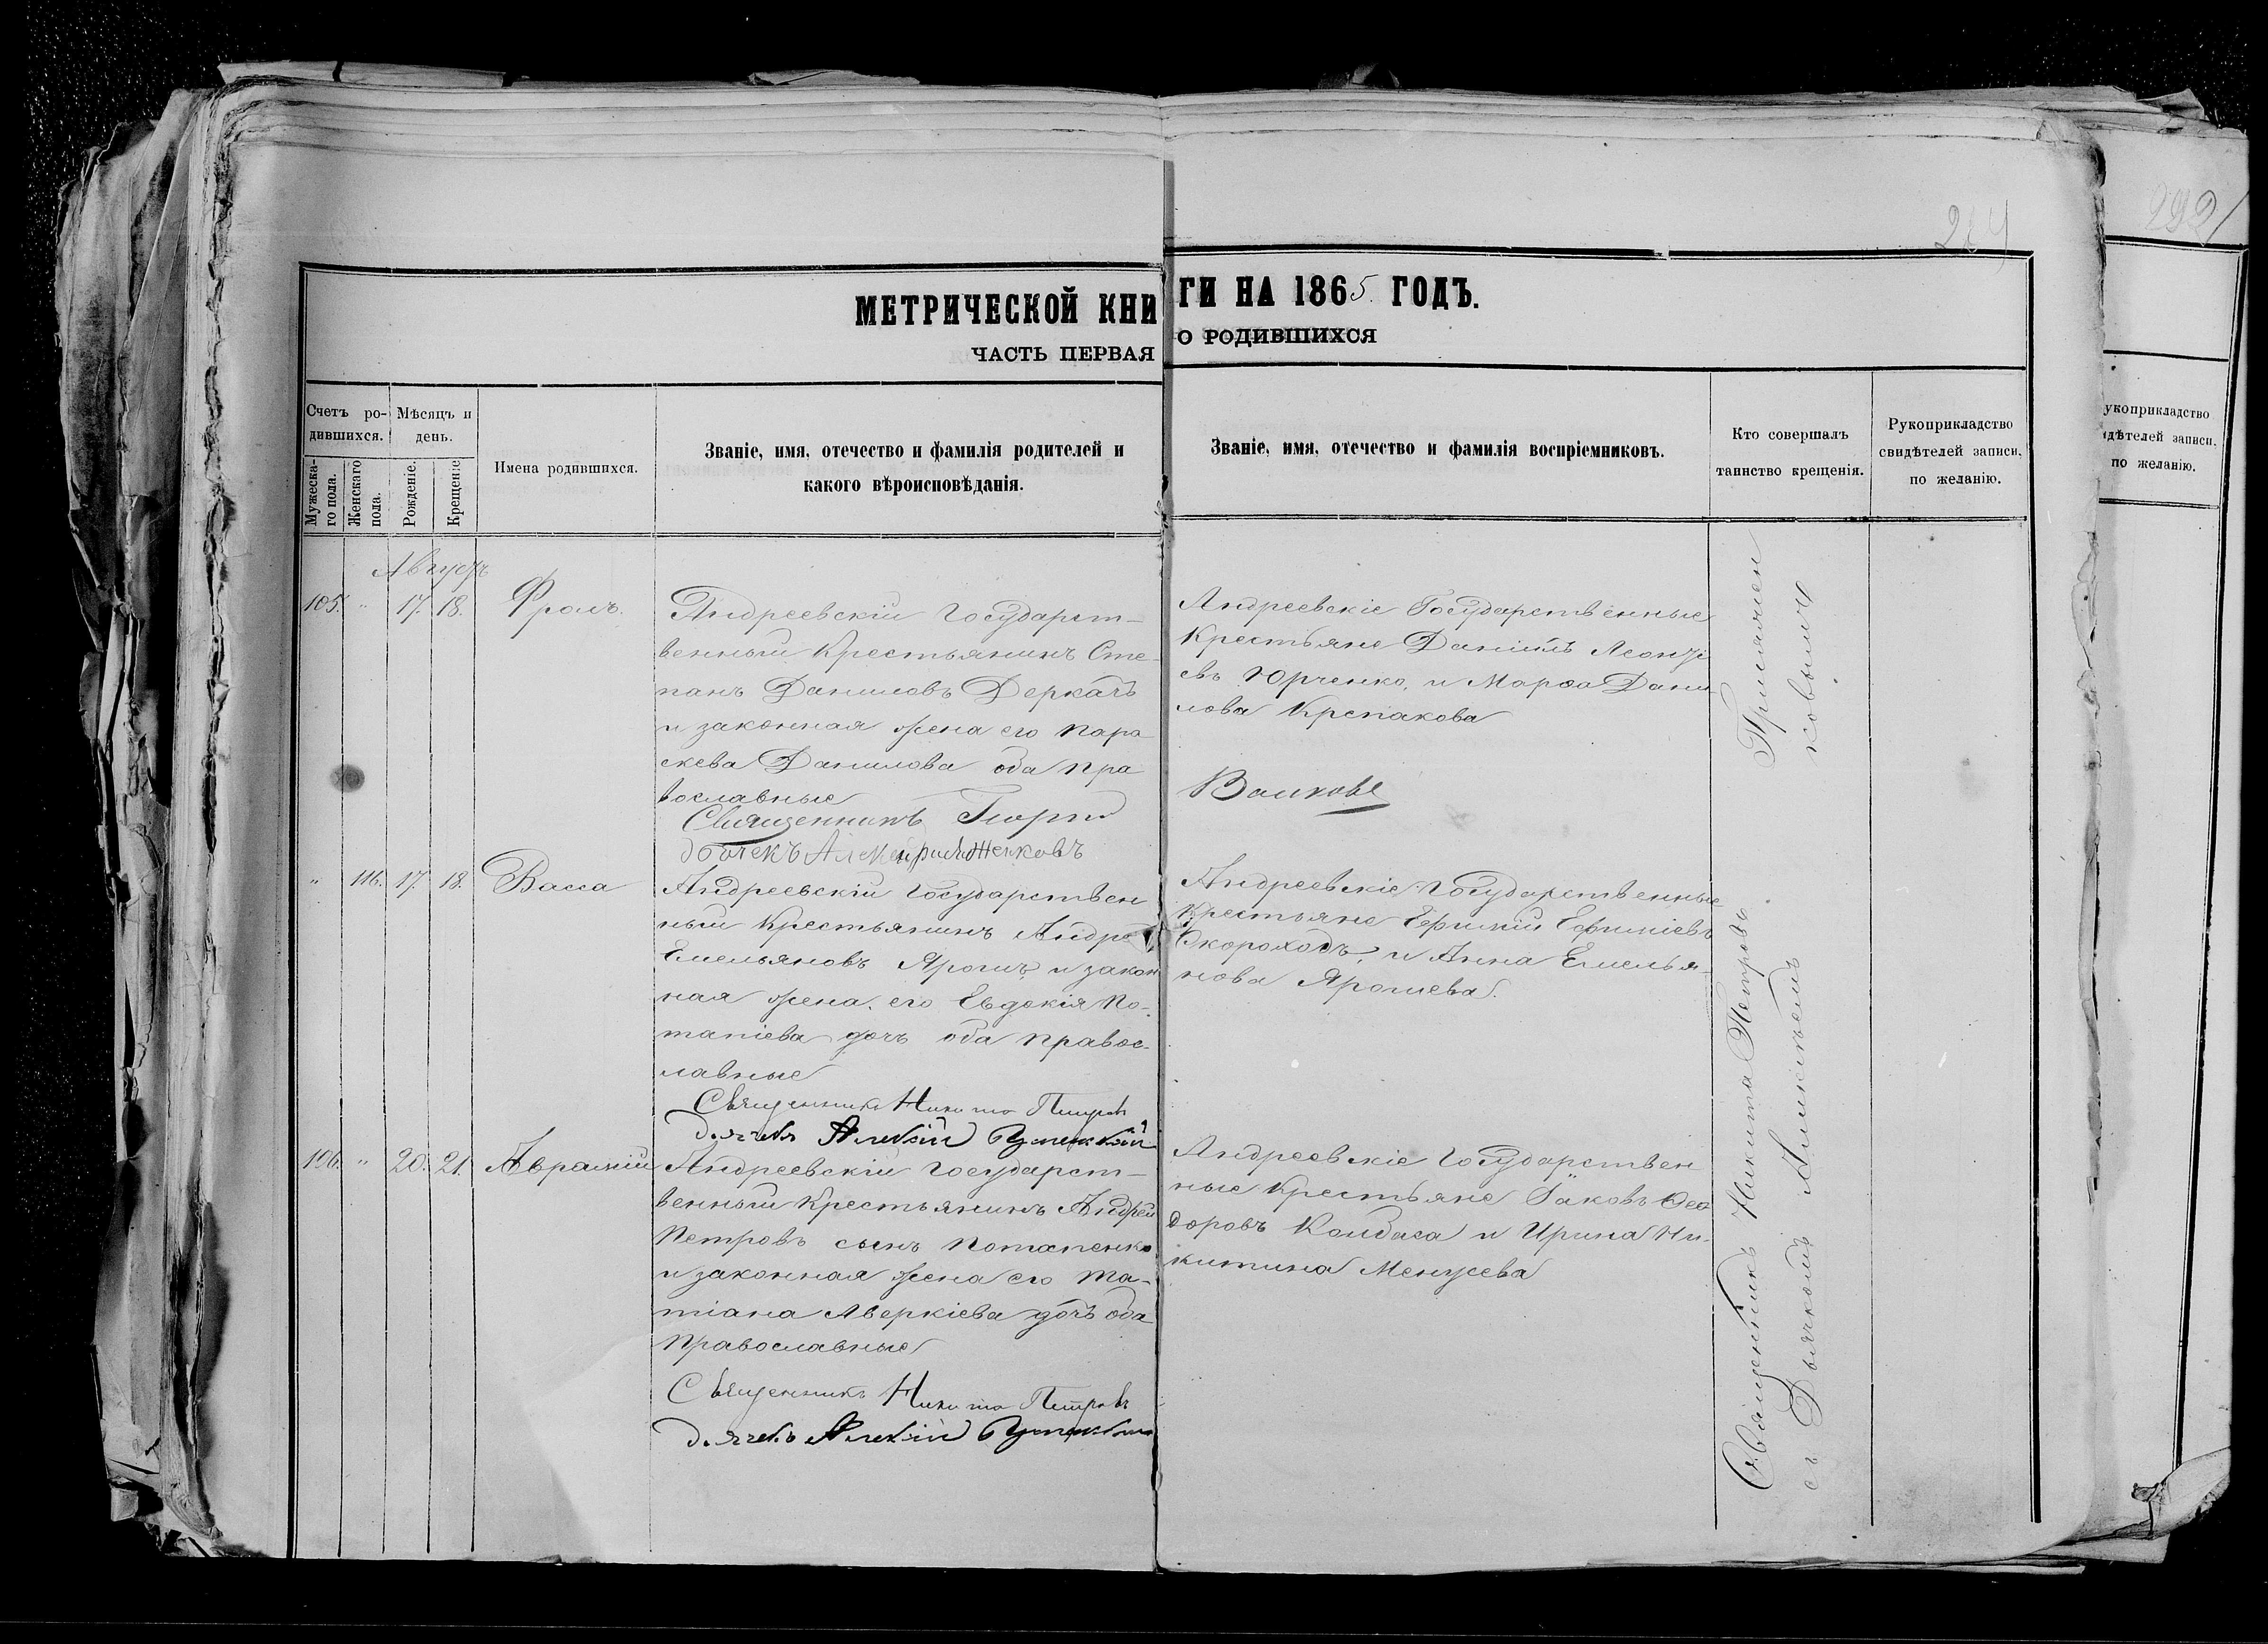 292
МЕТРИЧЕСКОЙ КНИГИ НА 1865 ГОДЪ.
ЧАСТЬ ПЕРВАЯ О РОДИВШИХСЯ
Счетъ ро-
дившихся.
Мужеска-
го пола.
Женскаго
пола.
Мѣсяцъ и
день.
Рожденіе.
Крещеніе
Имена родившихся.
Званіе, имя, отечество и фамилія родителей и
какого вѣроисповѣданія.
Званіе, имя, отечество и фамилія воспріемниковъ.
Кто совершалъ
таинство крещенія.
Рукоприкладство
свидѣтелей записи,
по желанію.
укоприкладство
идѣтелей записи,
по желанію.
Августъ
105. " 17. 18. Фролъ.
Андреевскій Государст-
венный Крестьянинъ Сте-
панъ Даниловъ Деркачъ
и законная жена его Пара
скева Данилова оба Пра
вославные
Священникъ Георгій Волковъ
Андреевскіе Государственные
Крестьяне Даніилъ Леонті
евъ Юрченко, и Марѳа Дани
лова Крепакова
" 116. 17. 18. Васса
Андреевскій Государствен
ный Крестьянинъ Андрей
Емельяновъ Ярошъ и закон
ная жена его Евдокія По-
тапіева дочь оба правос-
лавные
Священникъ Никита Петровъ
дьячекъ Алексій
Андреевскіе Государственные
Крестьяне Ефимій Ефиміевъ
Скороходъ, и Анна Емелья-
нова Ярошева.
106. " 20. 21. Аврамій
Андреевскій Государст-
венный Крестьянинъ Андрей
Петровъ сынъ Потапенко
и законная жена его Та-
тіана Аверкіева дочь оба
Православные
Священникъ Никита Петровъ
дьячекъ Алексій
Андреевскіе Государствен
ные Крестьяне Іаковъ Ѳео
доровъ Колбаса и Ирина Ни-
китина
Священникъ Никита Петровъ
съ Дьячкомъ